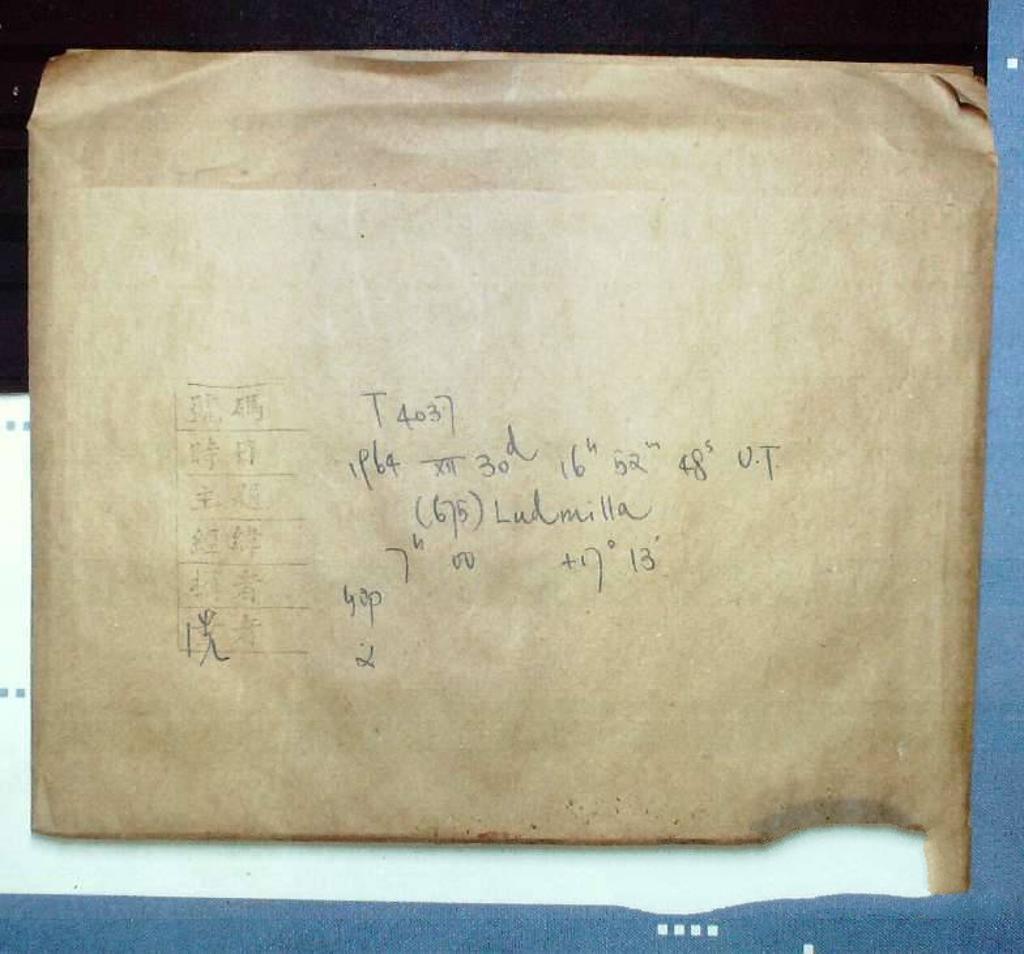 號碼 T 4037
時日 1964 XII 30d 16h 52m 48s U.T.
主題 (675) Ludmilla
經緯 7h 00 +17° 13'
者
洗者